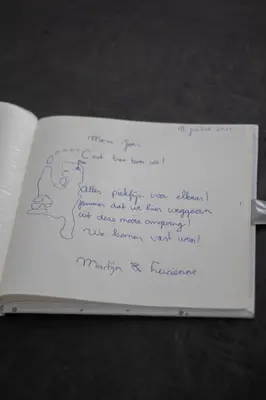 Merci
C'est très bien ici!
Alles piekfijn voor elkaar!
Jammer dat we hier weggaan
uit deze mooie omgeving!
We komen vast weer!
Martijn & Lucienne